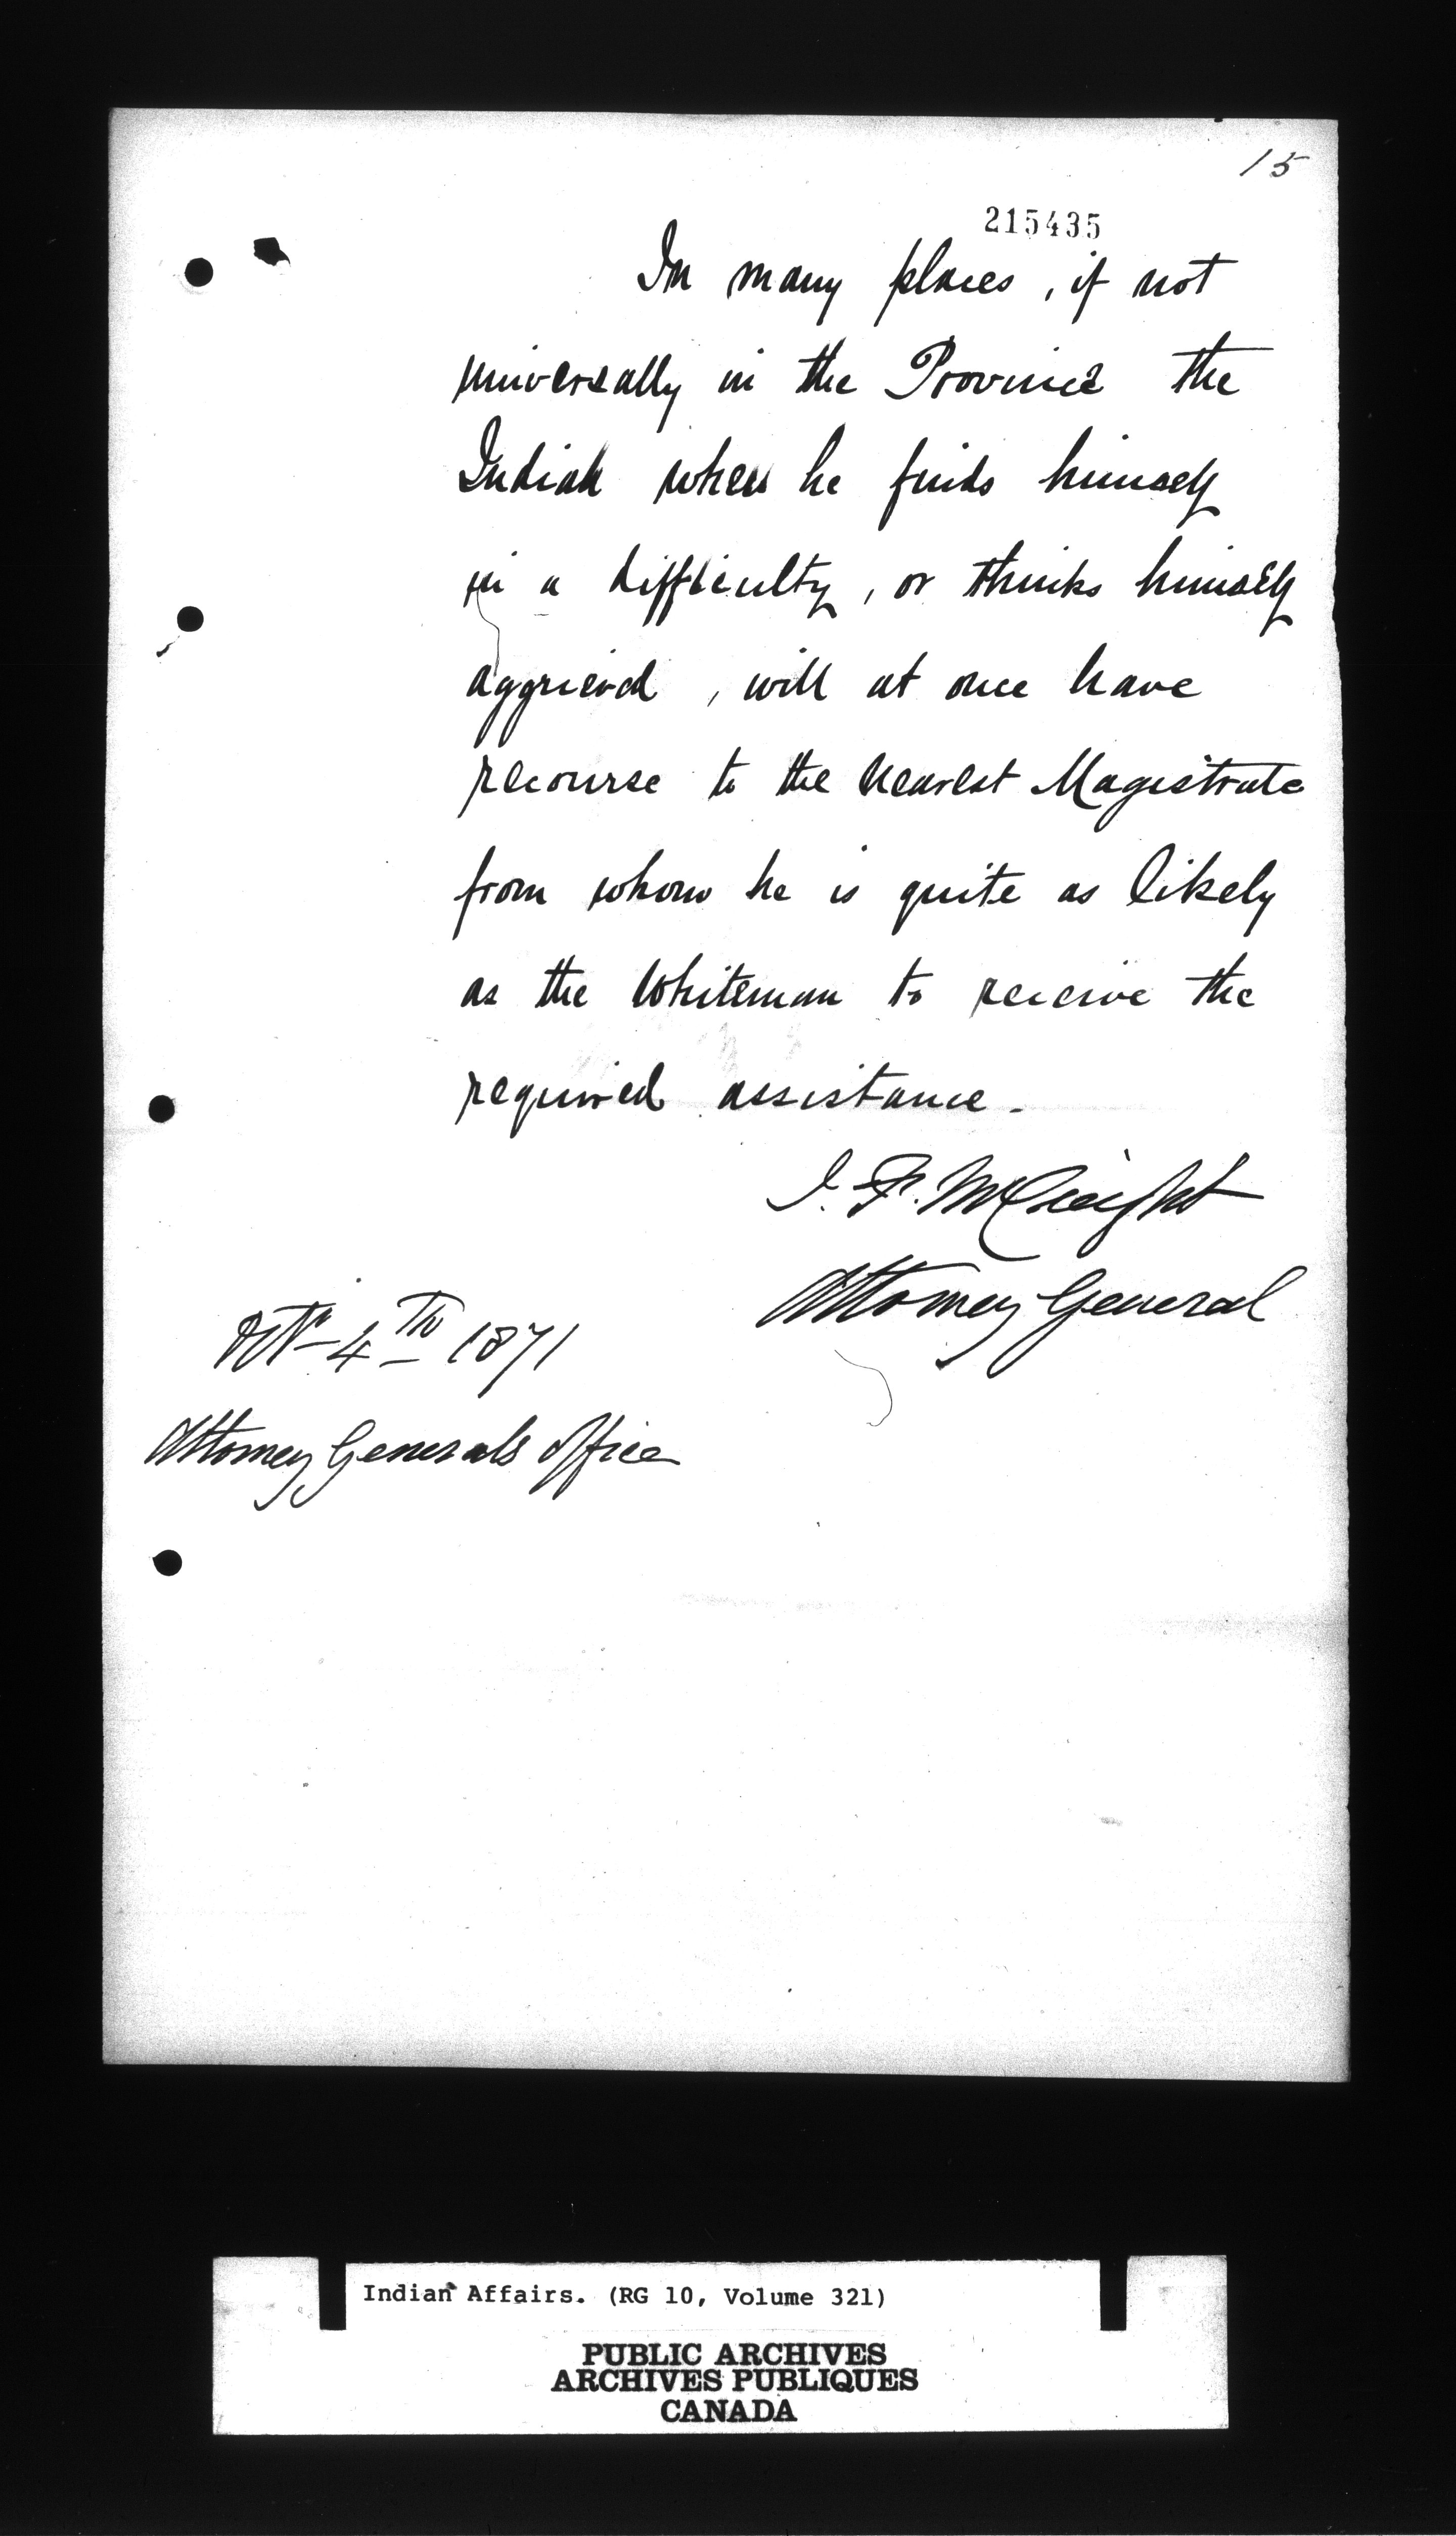 15
215435
In many places, if not
universally in the Province the
Indian when he finds himself
in a difficulty, or thinks himself
aggrieved, will at once have
recourse to the nearest Magistrate
from whom he is quite as likely
as the Whiteman to receive the
required assistance.
J. F. McCreight
Attorney General
Octr 4th 1871
Attorney Generals Office
Indian Affairs. (RG 10, Volume 321)
PUBLIC ARCHIVES
ARCHIVES PUBLIQUES
CANADA